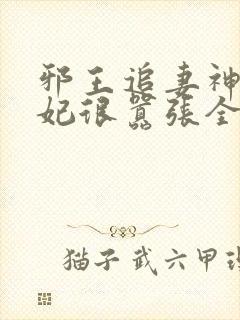 邪王追妻神
妃很囂張全
猫子武六甲